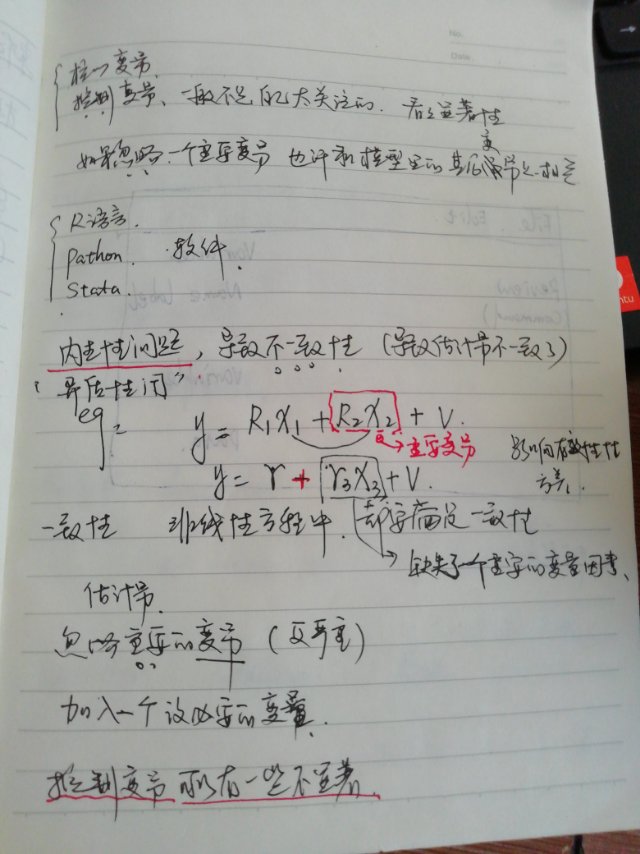 核心变量、
控制变量、一般不是我们大关注的. 看显著性
如果忽略一个重要变量 也许和模型里的其他变量是相关
R语言.
Pathon. 软件.
Stata.
内生性问题，导致不一致性（导致估计量不一致了）
“异后性问”
eg = y = R₁X₁ + R₂X₂ + V.
重要变量
影响有效性性
方差.
y = r + r₃X₃ + V.
一致性 非线性方程中. 都要满足一致性
缺失了一个重要的变量因素、
估计量.
忽略重要的变量（更严重）
加入一个没必要的变量.
控制变量 可以有一些不显著.